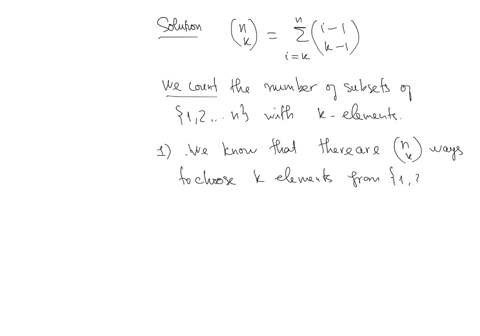 Solution (n k) = n Σ i=k (i-1 k-1)
We count the number of subsets of
{1,2...n} with k-elements.
1) .We know that there are (n k) ways
to choose k elements from {1,2